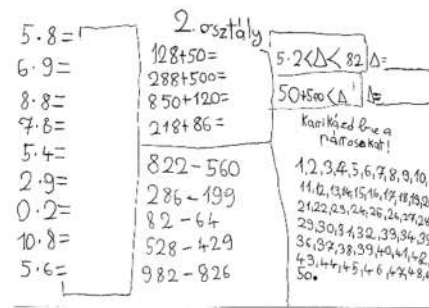 2. osztály
5·8=
6·9=
8·8=
7·8=
5·4=
2·9=
0·2=
10·8=
5·6=
128+50=
288+500=
850+120=
218+86=
822-560
286-199
82-64
528-429
982-826
5·2<Δ<82 Δ=
50+500<Δ Δ=
Karikázd be a
párosakat!
1,2,3,4,5,6,7,8,9,10,
11,12,13,14,15,16,17,18,19,20
21,22,23,24,25,26,27,28
29,30,31,32,33,34,35
36,37,38,39,40,41,42,
43,44,45,46,47,48,4
50.